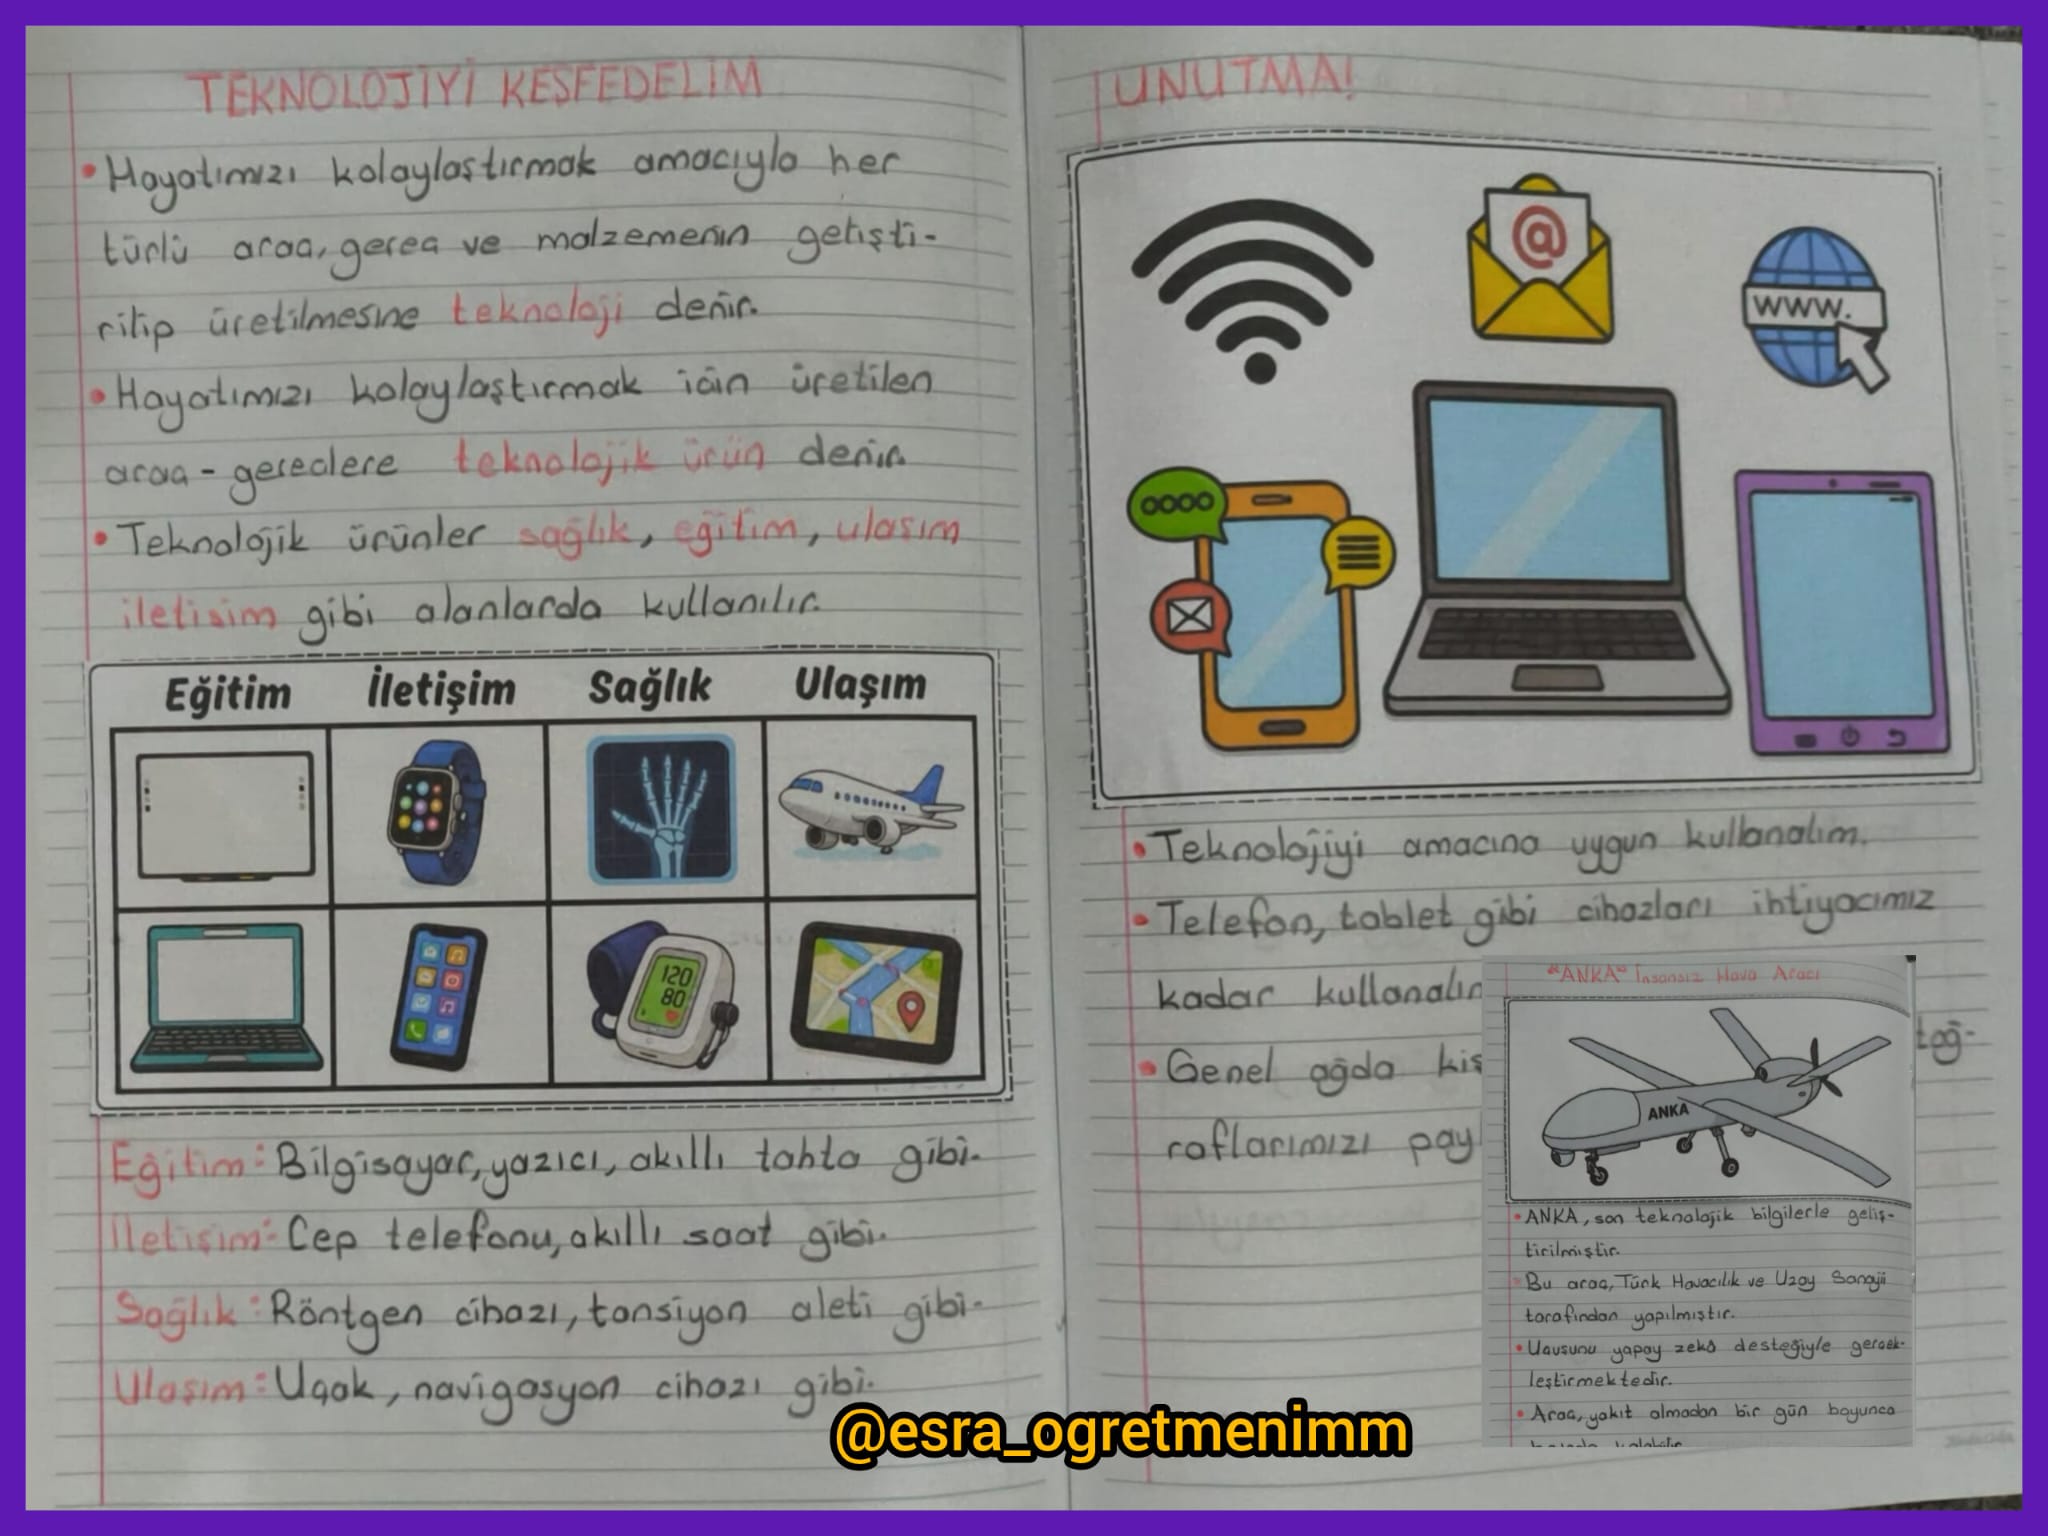 TEKNOLOJİYİ KEŞFEDELİM
• Hayatımızı kolaylaştırmak amacıyla her
türlü araç, gereç ve malzemenin gelişti-
rilip üretilmesine teknoloji denir.
• Hayatımızı kolaylaştırmak için üretilen
araç-gereçlere teknolojik ürün denir.
• Teknolojik ürünler sağlık, eğitim, ulaşım
iletişim gibi alanlarda kullanılır.
Eğitim İletişim Sağlık Ulaşım
120
80
Eğitim: Bilgisayar, yazıcı, akıllı tahta gibi.
İletişim: Cep telefonu, akıllı saat gibi.
Sağlık: Röntgen cihazı, tansiyon aleti gibi.
Ulaşım: Uçak, navigasyon cihazı gibi.
UNUTMA!
@
www.
• Teknolojiyi amacına uygun kullanalım.
• Telefon, tablet gibi cihazları ihtiyacımız
kadar kullanalım
• Genel ağda kiş
toğ-
raflarımızı pay
"ANKA" İnsansız Hava Aracı
ANKA
• ANKA, son teknolojik bilgilerle geliş-
tirilmiştir.
• Bu araç, Türk Havacılık ve Uzay Sanayii
tarafından yapılmıştır.
• Uçuşunu yapay zekâ desteğiyle gerçek-
leştirmektedir.
• Araç, yakıt almadan bir gün boyunca
@esra_ogretmenimm